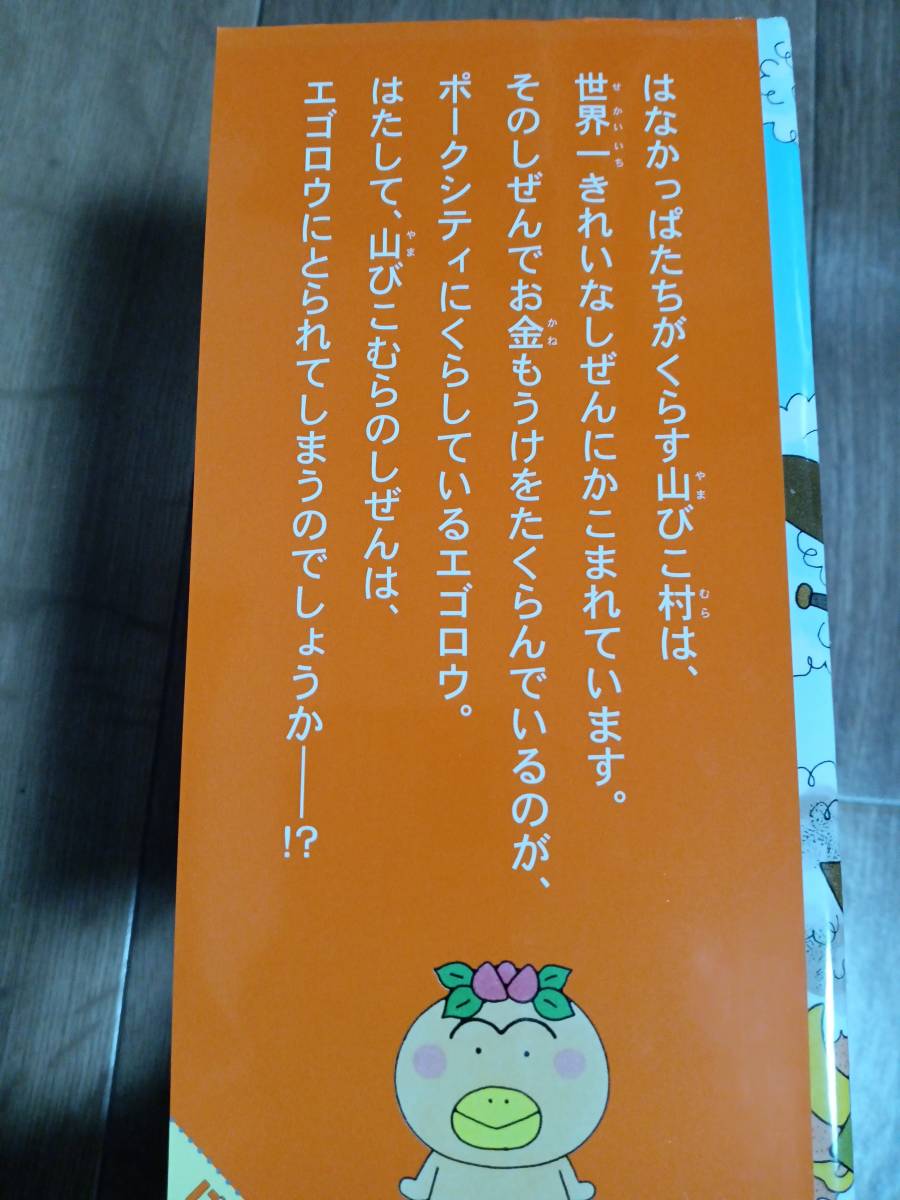 はなかっぱたちがくらす山びこ村は、
世界一きれいなしぜんにかこまれています。
そのしぜんでお金もうけをたくらんでいるのが、
ポークシティにくらしているエゴロウ。
はたして、山びこむらのしぜんは、
エゴロウにとられてしまうのでしょうか——!?
は